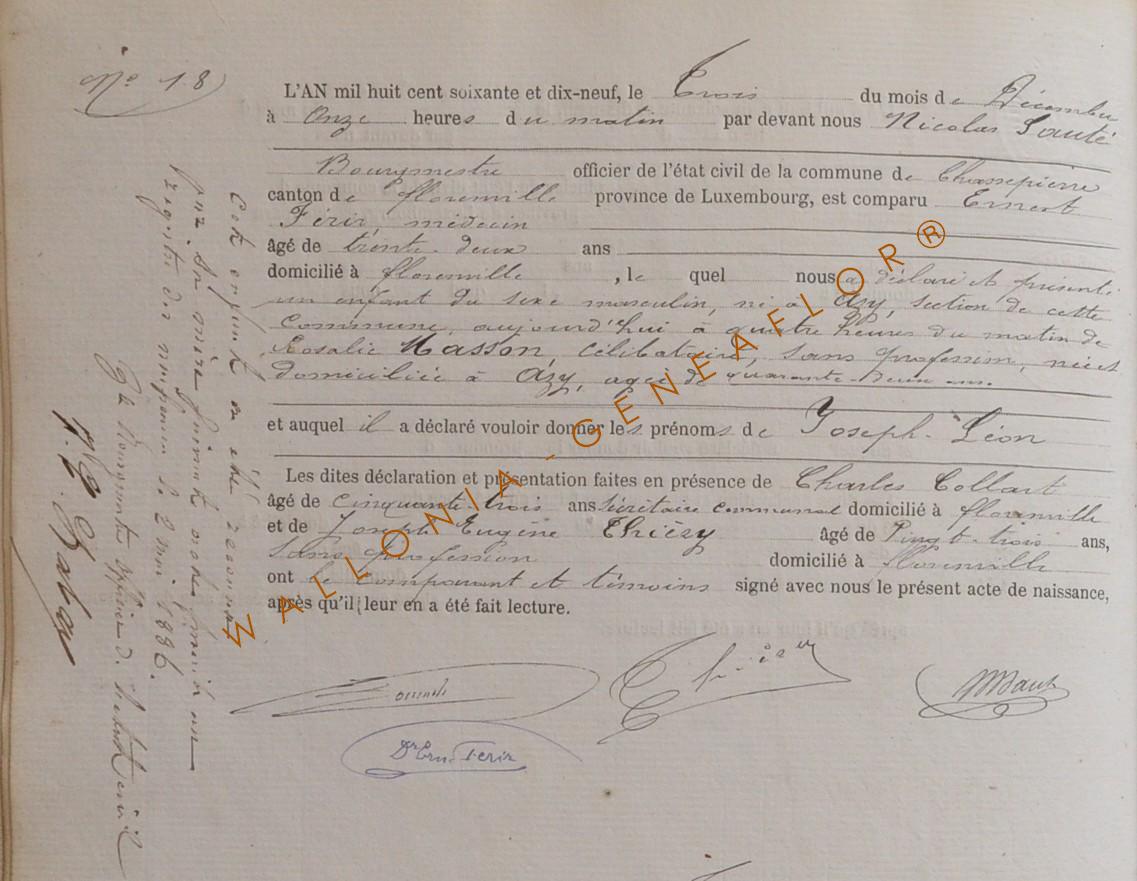 No 18
L'AN mil huit cent soixante et dix-neuf, le Trois du mois de Décembre
à Onze heures du matin par devant nous Nicolas Santé
Bourgmestre officier de l'état civil de la commune de Chassepierre
canton de florenville province de Luxembourg, est comparu Ernest
Férir, médecin
âgé de trente-deux ans
domicilié à florenville, le quel nous a déclaré et présenté
un enfant du sexe masculin, né à Azy, section de cette
commune, aujourd'hui à quatre heures du matin de
Rosalie Hasson, célibataire, sans profession, née et
domiciliée à Azy, agée de quarante-deux ans.
et auquel il a déclaré vouloir donner les prénoms de Joseph-Léon
Les dites déclaration et présentation faites en présence de Charles Collart
âgé de cinquante-trois ans Sécrétaire communal domicilié à florenville
et de Joseph Eugène Thiéry âgé de Vingt-trois ans,
Sans profession domicilié à florenville
ont le comparant et témoins signé avec nous le présent acte de naissance,
après qu'il leur en a été fait lecture.
Dr Ern. Férir
Cet enfant a été reconnu
par sa mère suivant acte
registre des 2 mai 1886.
WALLONIA-GÉNÉAFLOR®